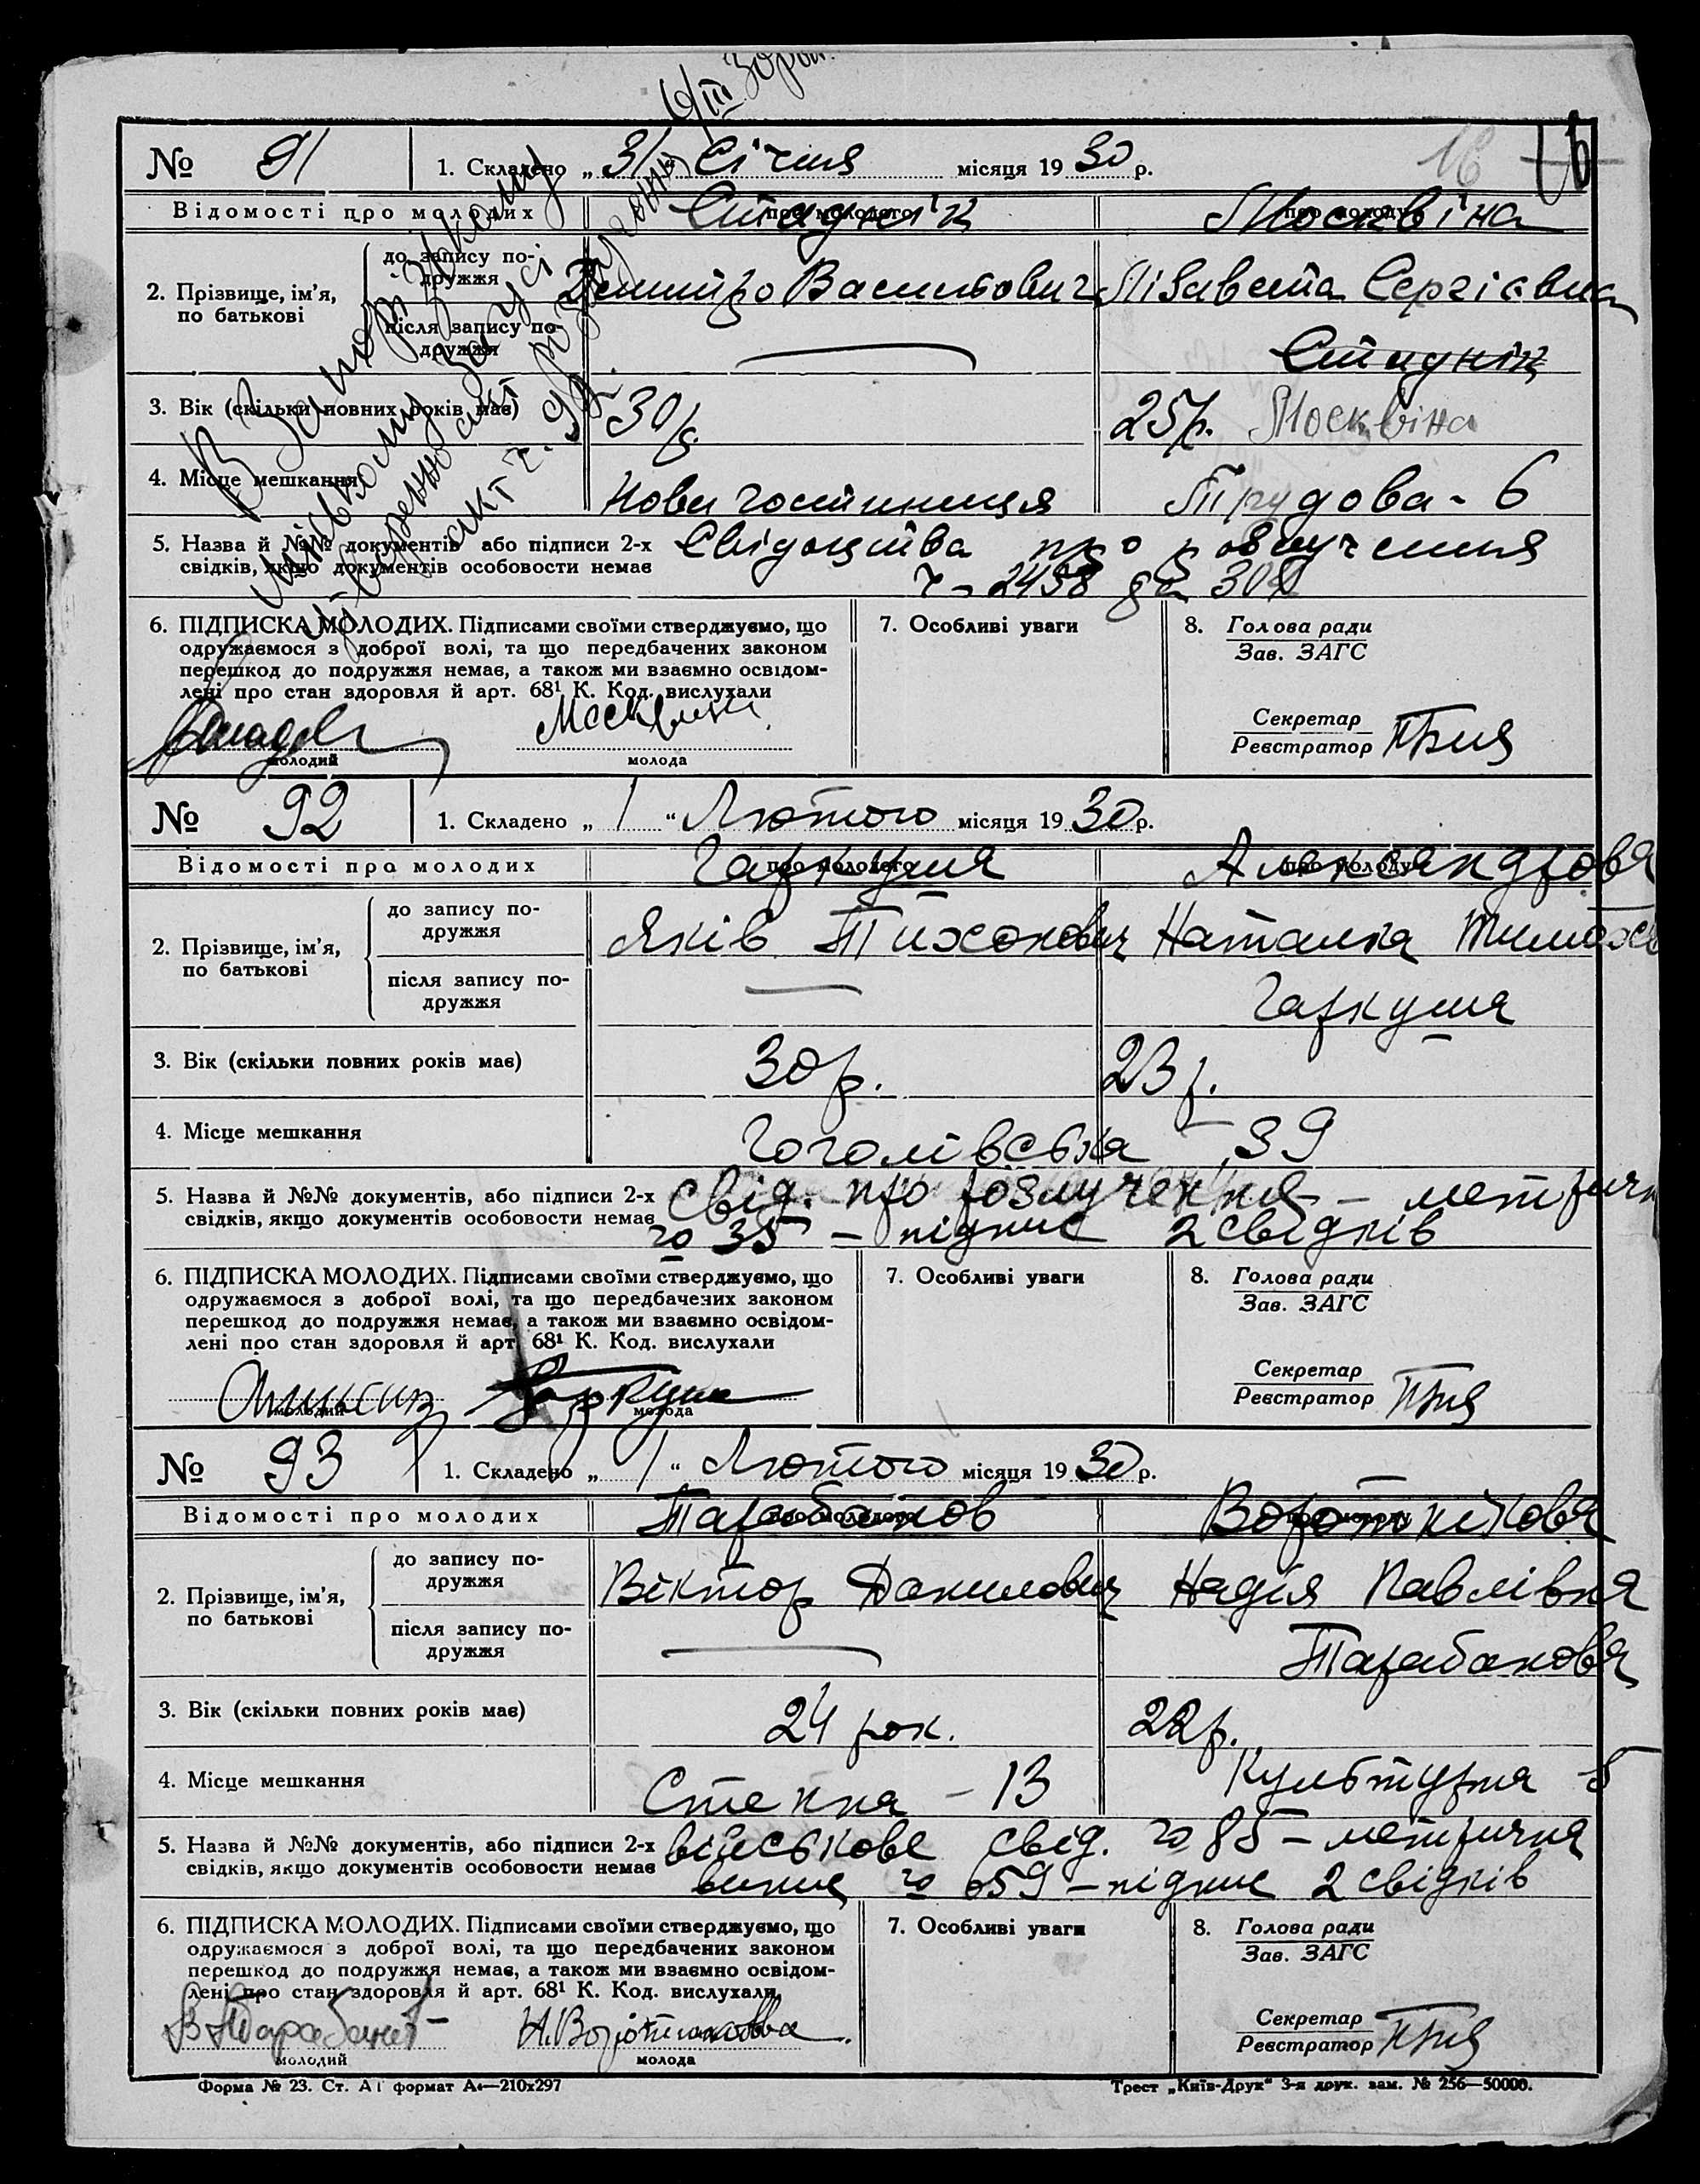 6/III 30 р.
№ 91 1. Складено „31“ Січня місяця 1930 р. 16
Відомості про молодих про молодого про молоду
Москвіна
2. Прізвище, ім'я, по батькові
до запису подружжя
Дмитро Васильович Лізавета Сергієвна
після запису подружжя
3. Вік (скільки повних років має) 30 р. 25 р. Москвіна
4. Місце мешкання Нова гостинниця Трудова - 6
5. Назва й №№ документів або підписи 2-х Свідоцтва про розлучення
свідків, якщо документів особовости немає ч - 2458
6. ПІДПИСКА МОЛОДИХ. Підписами своїми стверджуємо, що 7. Особливі уваги 8. Голова ради
одружаємося з доброї волі, та що передбачених законом Зав. ЗАГС
перешкод до подружжя немає, а також ми взаємно освідом-
лені про стан здоровля й арт. 68¹ К. Код. вислухали
Секретар
Реєстратор
молодий молода
№ 92 1. Складено „1“ Лютого місяця 1930 р.
Відомості про молодих про молодого про молоду
Гаркуша Александрова
2. Прізвище, ім'я, по батькові
до запису подружжя
Яків Тихонович Наталка
після запису подружжя
— Гаркуша
3. Вік (скільки повних років має) 30 р. 23 р.
4. Місце мешкання Гоголівська 39
5. Назва й №№ документів, або підписи 2-х свід. про розлучення - метричн
свідків, якщо документів особовости немає 35 - підпис 2 свідків
6. ПІДПИСКА МОЛОДИХ. Підписами своїми стверджуємо, що 7. Особливі уваги 8. Голова ради
одружаємося з доброї волі, та що передбачених законом Зав. ЗАГС
перешкод до подружжя немає, а також ми взаємно освідом-
лені про стан здоровля й арт. 68¹ К. Код. вислухали
Секретар
Реєстратор
Гаркуша
молодий молода
№ 93 1. Складено „1“ Лютого місяця 1930 р.
Відомості про молодих про молодого про молоду
Тарабанов Воротнікова
2. Прізвище, ім'я, по батькові
до запису подружжя
Віктор Данилович Надія Павлівна
після запису подружжя
— Тарабанова
3. Вік (скільки повних років має) 24 рок. 22 р.
4. Місце мешкання Степна - 13 Культурна 5
5. Назва й №№ документів, або підписи 2-х військове свід. № 85 - метрична
свідків, якщо документів особовости немає випис № 659 - підпис 2 свідків
6. ПІДПИСКА МОЛОДИХ. Підписами своїми стверджуємо, що 7. Особливі уваги 8. Голова ради
одружаємося з доброї волі, та що передбачених законом Зав. ЗАГС
перешкод до подружжя немає, а також ми взаємно освідом-
лені про стан здоровля й арт. 68¹ К. Код. вислухали
Секретар
Реєстратор
В Тарабанов Н. Воротнікова
молодий молода
Форма № 23. Ст. А1 формат А4—210х297 Трест „Київ-Друк“ 3-я друк. зам. № 256—50000.